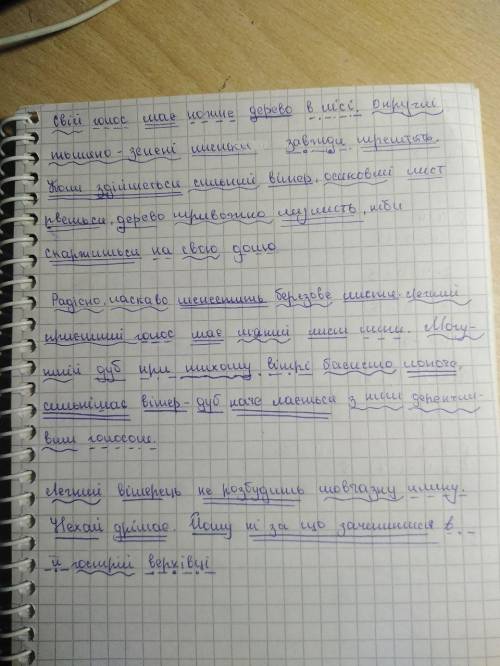 Свій голос має кожне дерево в лісі. Округлі
тьмяно-зелені листики завжди тремтять.
Коли здіймється сильний вітер, осиковий лист
рветься, дерево тривожно шумить, ніби
скаржиться на свою долю
Радісно, ласкаво шелестить березове листя. Легкий
приємний голос має м'який лист липи. Могу-
тній дуб при тихому вітрі басисто лопоче,
сильнішає вітер - дуб наче лається з ним деренчли-
вим голосом.
Легкий вітерець не розбудить мовчазну ялину.
Нехай дрімає. Йому ні за що зачепитися в
її гострій верхівці